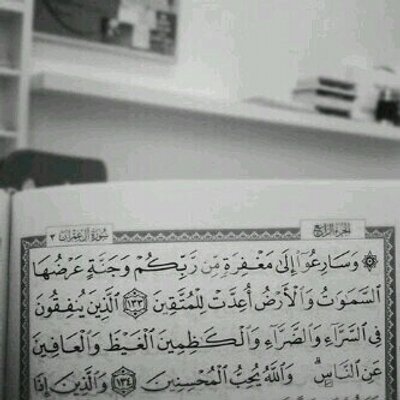 الجزء الرابع
سورة آل عمران ٣
۞ وَسَارِعُوٓا۟ إِلَىٰ مَغْفِرَةٍ مِّن رَّبِّكُمْ وَجَنَّةٍ عَرْضُهَا
ٱلسَّمَٰوَٰتُ وَٱلْأَرْضُ أُعِدَّتْ لِلْمُتَّقِينَ ١٣٣ ٱلَّذِينَ يُنفِقُونَ
فِى ٱلسَّرَّآءِ وَٱلضَّرَّآءِ وَٱلْكَٰظِمِينَ ٱلْغَيْظَ وَٱلْعَافِينَ
عَنِ ٱلنَّاسِ ۗ وَٱللَّهُ يُحِبُّ ٱلْمُحْسِنِينَ ١٣٤ وَٱلَّذِينَ إِذَا